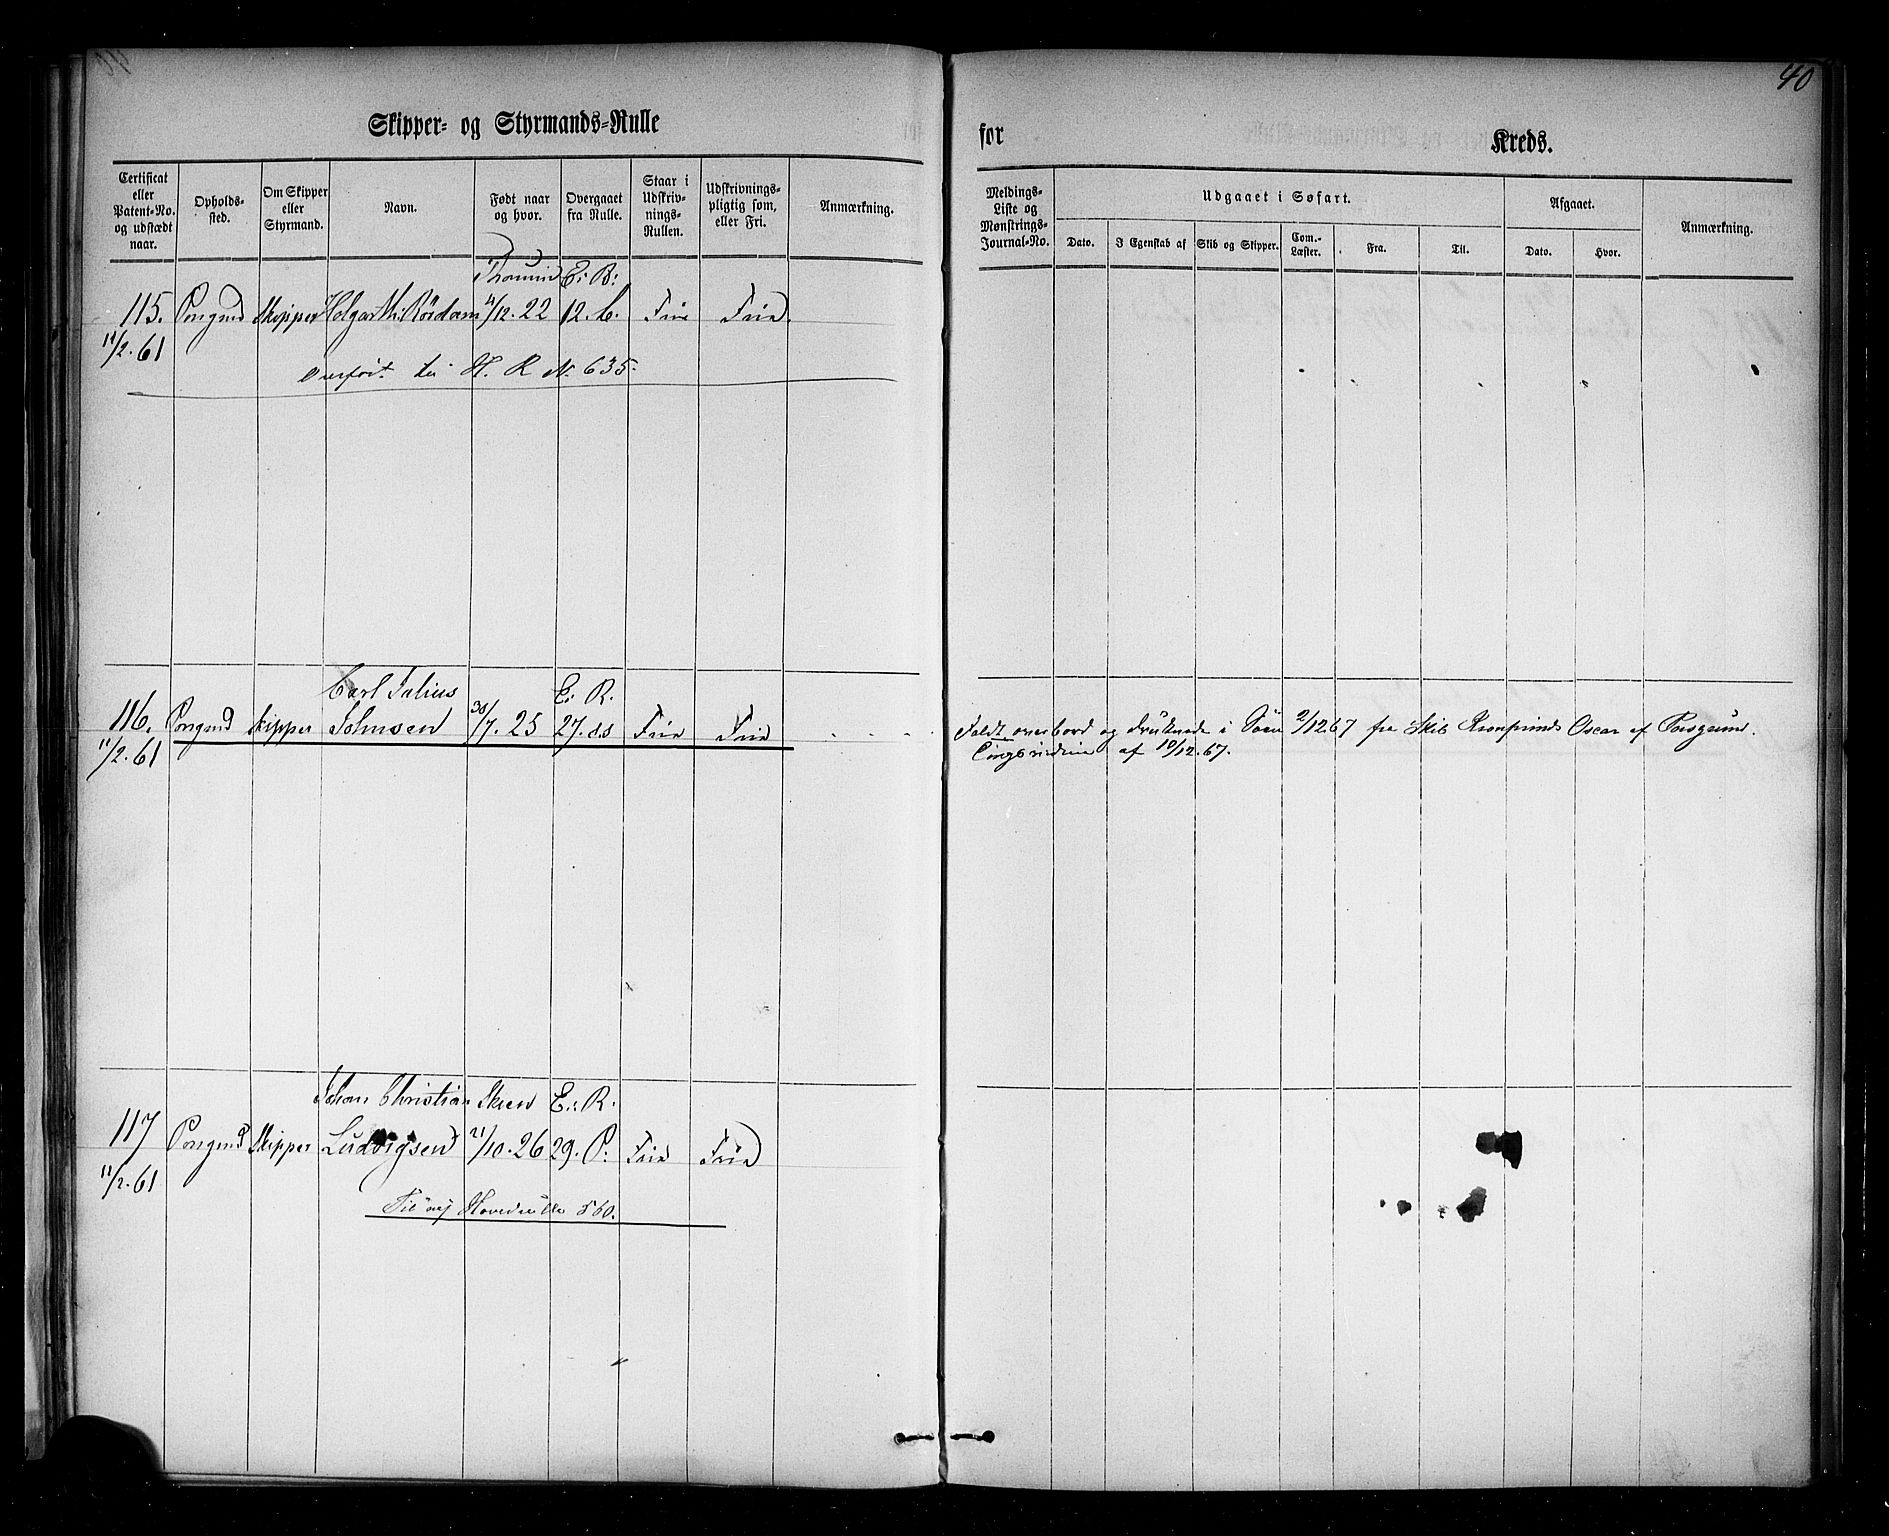 40
Skipper- og Styrmands-Rulle
for
Kreds.
Certifikat eller Patent-No. og udstædt naar.
Opholds-sted.
Om Skipper eller Styrmand.
Navn.
Født naar og hvor.
Overgaaet fra Rulle.
Staar i Udskriv-nings-Rullen.
Udskrivnings-pligtig som, eller Fri.
Anmærkning.
Meldings-Liste og Mønstrings-Journal-No.
Udgaaet i Søfart.
Dato.
I Egenskab af
Skib og Skipper.
Com.-Læster.
Fra.
Til.
Afgaaet.
Dato.
Hvor.
Anmærkning.
E: R:
115. Porsgrund Skipper Holgar M: Rördam 4/12. 22 12. b. Frie Frie.
11/2. 61
Overført til H. R No. 635.
Carl Julius E: R.
116. Porsgrund Skipper Johnsen 30/7. 25 27. ds Frie Frie
11/2. 61
Faldt overbord og druknede i Søen 2/12 67 fra Skib Kronprinds Oscar af Porsgrund.
af 10/12. 67.
Johan Christian Skien E: R.
117 Porsgrund Skipper Ludvigsen 21/10. 26 29. P: Frie Frie
11/2. 61
Til ny Hovedrulle 560.